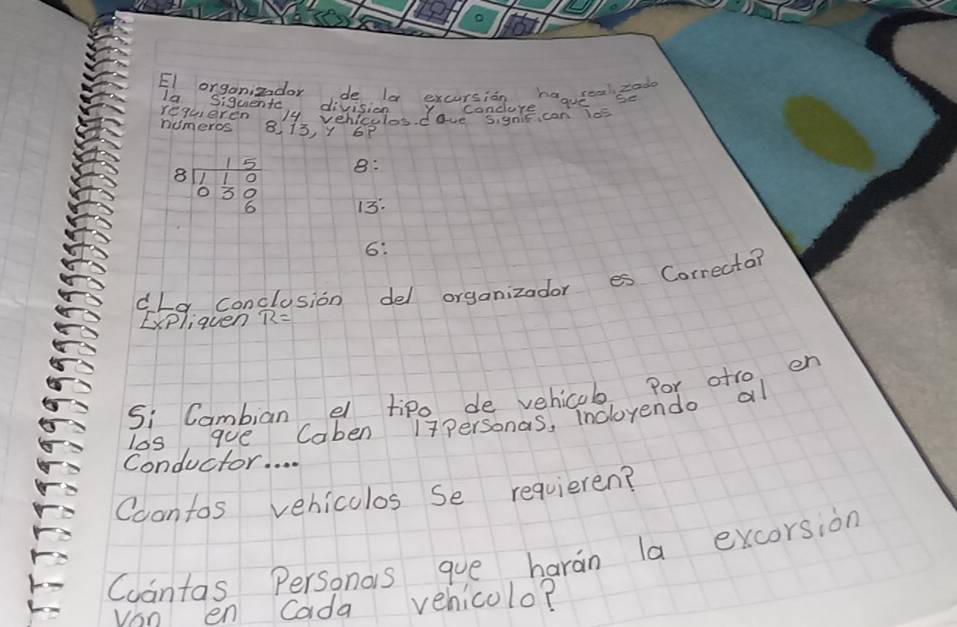 El organizador de la excursión ha realizado
la siguente división y concluye que se
requieren 14 vehiculos. ¿Que significan los
números 8, 13, y 6?
15
8 110
030
6
8:
13:
6:
¿La conclusión del organizador es Correcta?
Expliquen R=
Si Cambian el tipo de vehiculo Por otro en
los que Caben 17 Personas, incluyendo al
Conductor....
Cuantos vehiculos se requieren?
Cuántas Personas que harán la excursión
van en cada vehiculo?